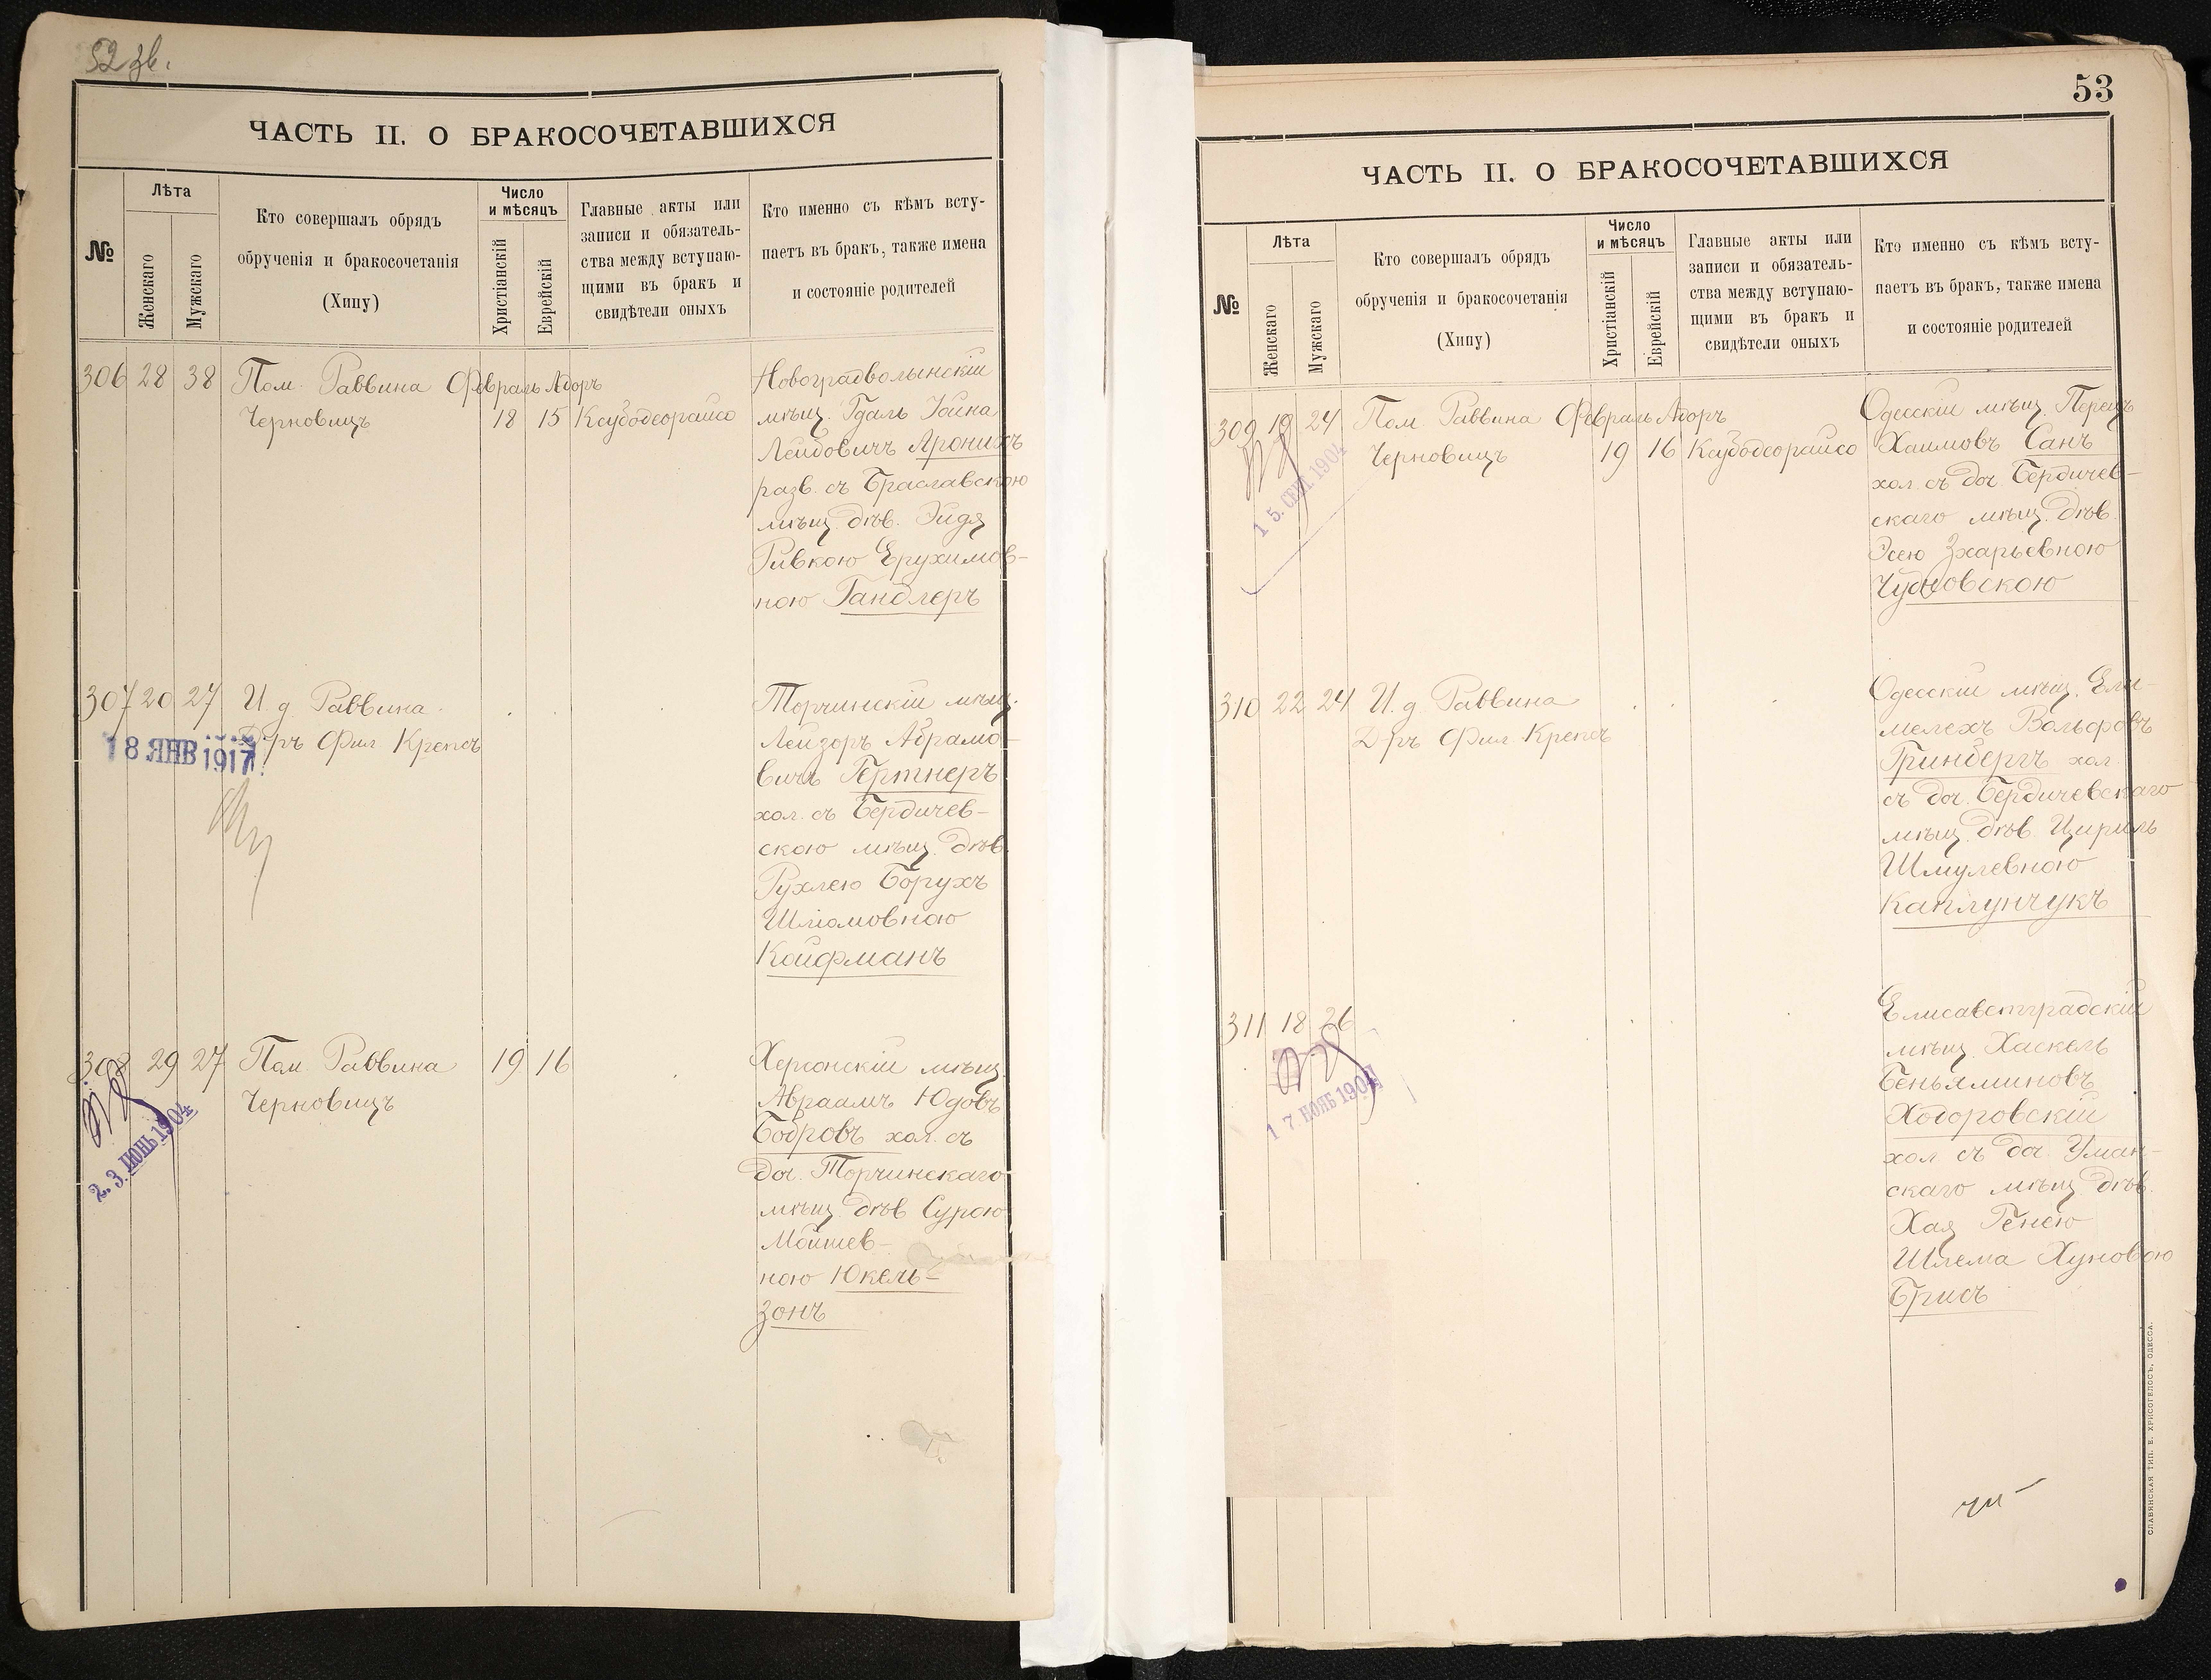 52 зв.
ЧАСТЬ II. О БРАКОСОЧЕТАВШИХСЯ
№
Лѣта
Женскаго
Мужскаго
Кто совершалъ обрядъ
обрученія и бракосочетанія
(Хипу)
Число
и мѣсяцъ
Христіанскій
Еврейскій
Главные акты или
записи и обязатель-
ства между вступаю-
щими въ бракъ и
свидѣтели оныхъ
Кто именно съ кѣмъ всту-
паетъ въ бракъ, также имена
и состояніе родителей
306 28 38 Пом. Раввина Февраль Адоръ
Черновицъ 18 15 Ксубодеорайсо
Новоградволынскій
мѣщ. Гдаль Іойна
Лейбовичъ Аронихъ
разв. съ Браславскою
мѣщ. дѣв. Эйдя
Ривкою Ерухимов-
ною Гандлеръ
307 20 27 И. д. Раввина
Д-ръ Фил. Крепсъ
18 ЯНВ 1917
Торчинскій мѣщ.
Лейзоръ Абрамо-
вичъ Гертнеръ
хол. съ Бердичев-
скою мѣщ. дѣв.
Рухлею Борухъ
Шліомовною
Койфманъ
308 29 27 Пом. Раввина 19 16
Черновицъ
2.3. ІЮНЬ 1904
Херсонскій мѣщ.
Авраамъ Юдовъ
Бобровъ хол. съ
доч. Торчинскаго
мѣщ. дѣв. Сурою
Мойшев-
ною Юкель-
зонъ
53
ЧАСТЬ II. О БРАКОСОЧЕТАВШИХСЯ
№
Лѣта
Женскаго
Мужскаго
Кто совершалъ обрядъ
обрученія и бракосочетанія
(Хипу)
Число
и мѣсяцъ
Христіанскій
Еврейскій
Главные акты или
записи и обязатель-
ства между вступаю-
щими въ бракъ и
свидѣтели оныхъ
Кто именно съ кѣмъ всту-
паетъ въ бракъ, также имена
и состояніе родителей
309 19 24 Пом. Раввина Февраль Адоръ
Черновицъ 19 16 Ксубодеорайсо
15. СЕНТ. 1904
Одесскій мѣщ. Перецъ
Хаимовъ Санъ
хол. съ доч. Бердичев-
скаго мѣщ. дѣв.
Эсею Зхарьевною
Чудновскою
310 22 24 И. д. Раввина
Д-ръ Фил. Крепсъ
Одесскій мѣщ. Ели-
мелехъ Вольфовъ
Гринбергъ хол.
съ доч. Бердичевскаго
мѣщ. дѣв. Цириль
Шмулевною
Каплунчукъ
311 18 26
17 НОЯБ 1904
Елисаветградскій
мѣщ. Хаскель
Беньяминовъ
Ходоровскій
хол. съ доч. Уман-
скаго мѣщ. дѣв.
Хая Генею
Шлема Хуновою
Брисъ
СЛАВЯНСКАЯ ТИП. Е. ХРИСОГЕЛОСЪ, ОДЕССА.